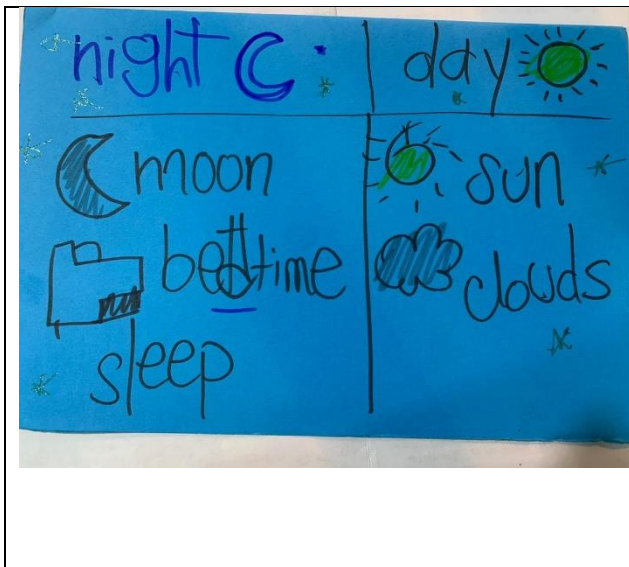 night
day
moon
sun
bedtime
clouds
sleep